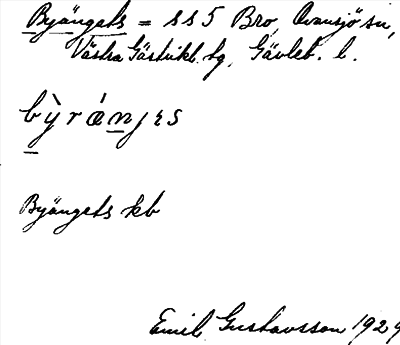 Byängets = s s 5 Bro, Ovansjö sn,
Västra Gästrikl. tg, Gävleb. l.
Byängets kb
Emil Gustavsson 1929